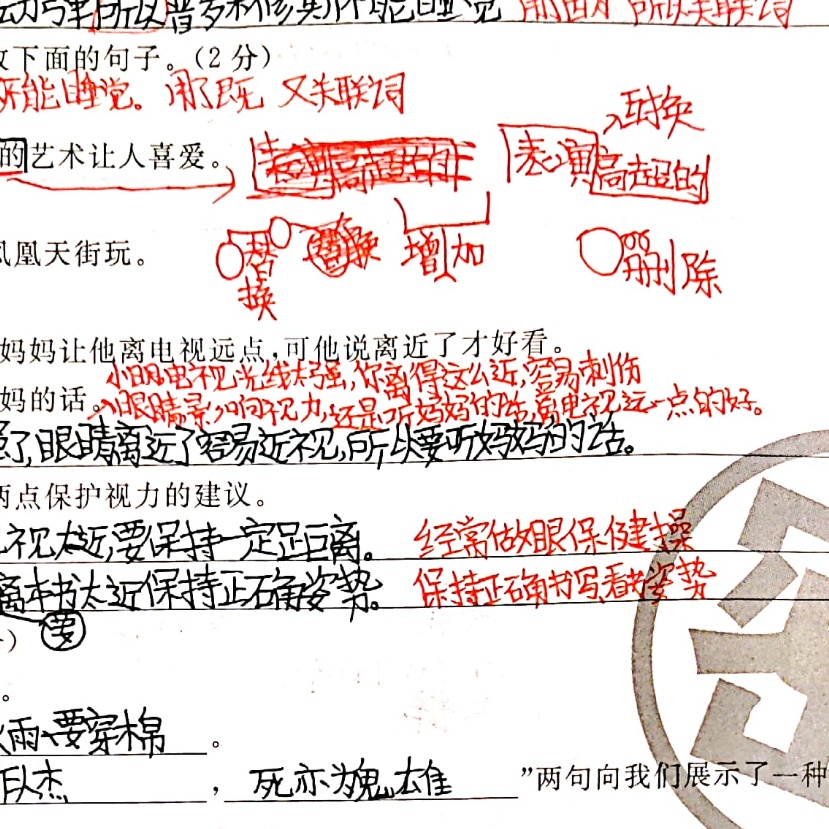 所以普罗米修斯不能睡觉 用因为 所以关联词
改下面的句子。(2分)
不能睡觉。用了既 又关联词
互换
的艺术让人喜爱。 表演高超的 表演高超的
凤凰天街玩。 替换 替换 增加 删除
妈妈让他离电视远点,可他说离近了才好看。
小明,电视光线太强,你离得这么近,容易刺伤
妈的话。 眼睛影响视力,还是听妈妈的话,离电视远一点的好。
了,眼睛离近了容易近视,所以要听妈妈的话。
两点保护视力的建议。
视太近,要保持一定距离。 经常做眼保健操
离本书太近保持正确姿势。 保持正确书写、看书姿势
要
。
雨要穿棉 。
人杰 , 死亦为鬼雄 ”两句向我们展示了一种